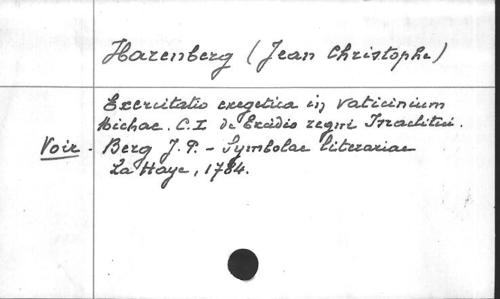 Harenberg (Jean Christophe)
Exercitatio exegetica in vaticinium
Michae. C.I de Excidio regni Israelitici.
Voir - Berg J.P. - Symbolae literariae
La Haye, 1784.